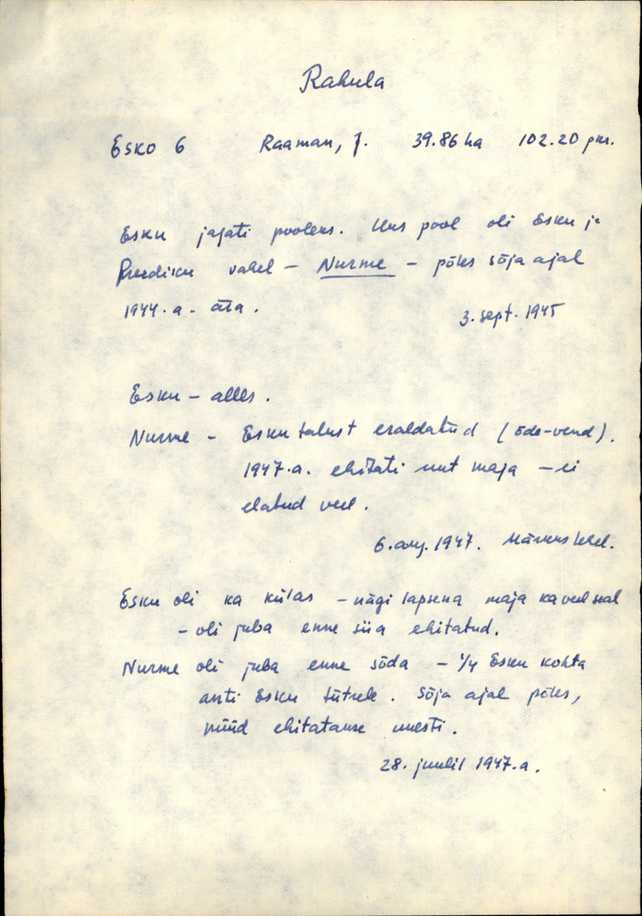 Rahula
Esko 6 Raaman, J. 39.86 ha 102.20
Esku jagati pooleks. Uus pool oli Esku ja
Preediku vahel – Nurme – põles sõja ajal
1944.a. ära.
3. sept. 1945
Esku – alles.
Nurme – Esku talust eraldatud (õde-vend).
1947.a. ehitati uut maja – ei
elatud veel.
6. aug. 1947.
Esku oli ka külas – nägi lapsena maja ka veel seal
– oli juba enne siia ehitatud.
Nurme oli juba enne sõda – 1/4 Esku kohta
anti Esku tütrele. Sõja ajal põles,
nüüd ehitatakse uuesti.
28. juulil 1947.a.